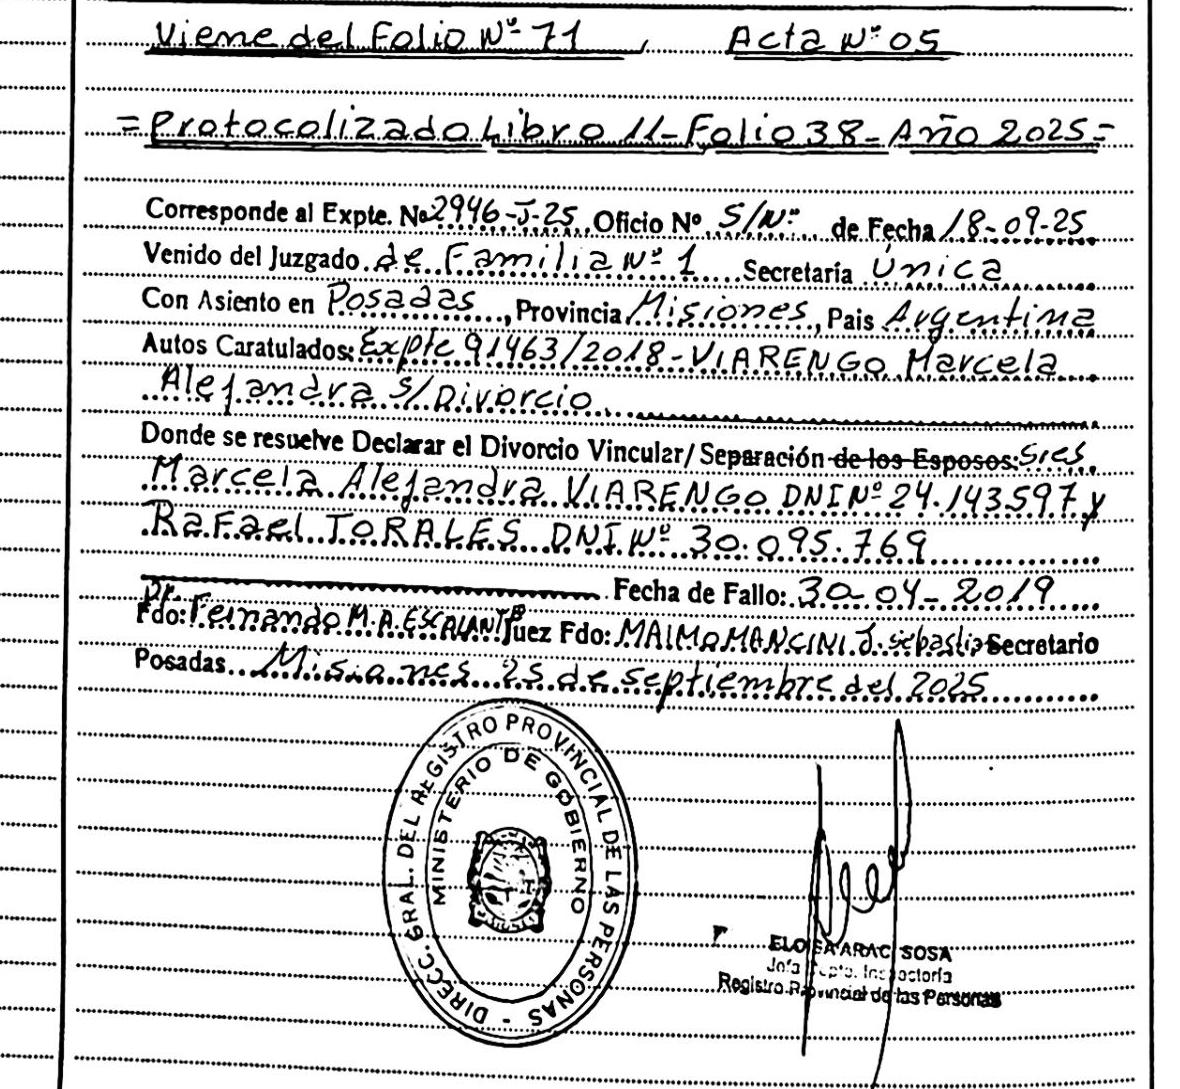 Viene del Folio Nº 71 Acta Nº 05
=Protocolizado Libro 11-Folio 38-Año 2025=
Corresponde al Expte. Nº 2946-J-25 Oficio Nº S/Nº de Fecha 18-09-25
Venido del Juzgado de Familia Nº 1 Secretaría Única
Con Asiento en Posadas, Provincia Misiones, Pais Argentina
Autos Caratulados: Expte 91463/2018-VIARENGO Marcela
Alejandra s/Divorcio
Donde se resuelve Declarar el Divorcio Vincular/ Separación de los Esposos: Sres
Marcela Alejandra VIARENGO DNI Nº 24.143.597 y
Rafael TORALES DNI Nº 30.095.769
Fecha de Fallo: 30-04-2019
Dr.
Fdo: Fernando M.A. ESCALANTE Juez Fdo: MAIMO MANCINI J. Sebastia Secretario
Posadas Misiones 25 de septiembre del 2025
DIRECC. GRAL. DEL REGISTRO PROVINCIAL DE LAS PERSONAS -
MINISTERIO DE GOBIERNO
SOSA
Registro Provincial de las Personas